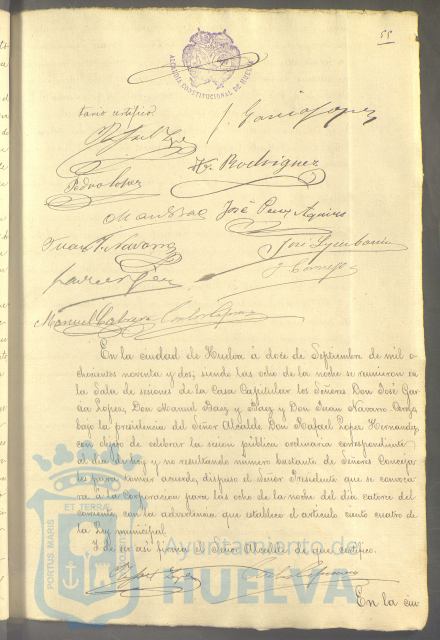 55
ALCALDIA CONSTITUCIONAL DE HUELVA
tario certifico.
J. Garcia Lopez
Rafael Lopez
H. Rodriguez
Pedro Lopez
José Perez
Juan N. Navarro
José
J. Cornejo
Manuel Cabrera
En la ciudad de Huelva á doce de Septiembre de mil o-
chocientos noventa y dos, siendo las ocho de la noche se reunieron en
la Sala de sesiones de la Casa Capitular los Señores Don José Gar-
cia Lopez, Don Manuel Baez y Baez y Don Juan Navarro
bajo la presidencia del Señor Alcalde Don Rafael Lopez Hernandez,
con objeto de celebrar la sesion pública ordinaria correspondiente
al dia de hoy y no resultando número bastante de Señores Conceja-
les para tomar acuerdo, dispuso el Señor Presidente que se convoca-
ra á la Corporacion para las ocho de la noche del dia catorce del
corriente con la advertencia que establece el artículo ciento cuatro de
la Ley municipal.
Y de ser así firma el Señor Alcalde de que certifico.
Rafael Lopez
En la ciu-
PORTUS MARIS ET TERRAE
Ayuntamiento de
HUELVA